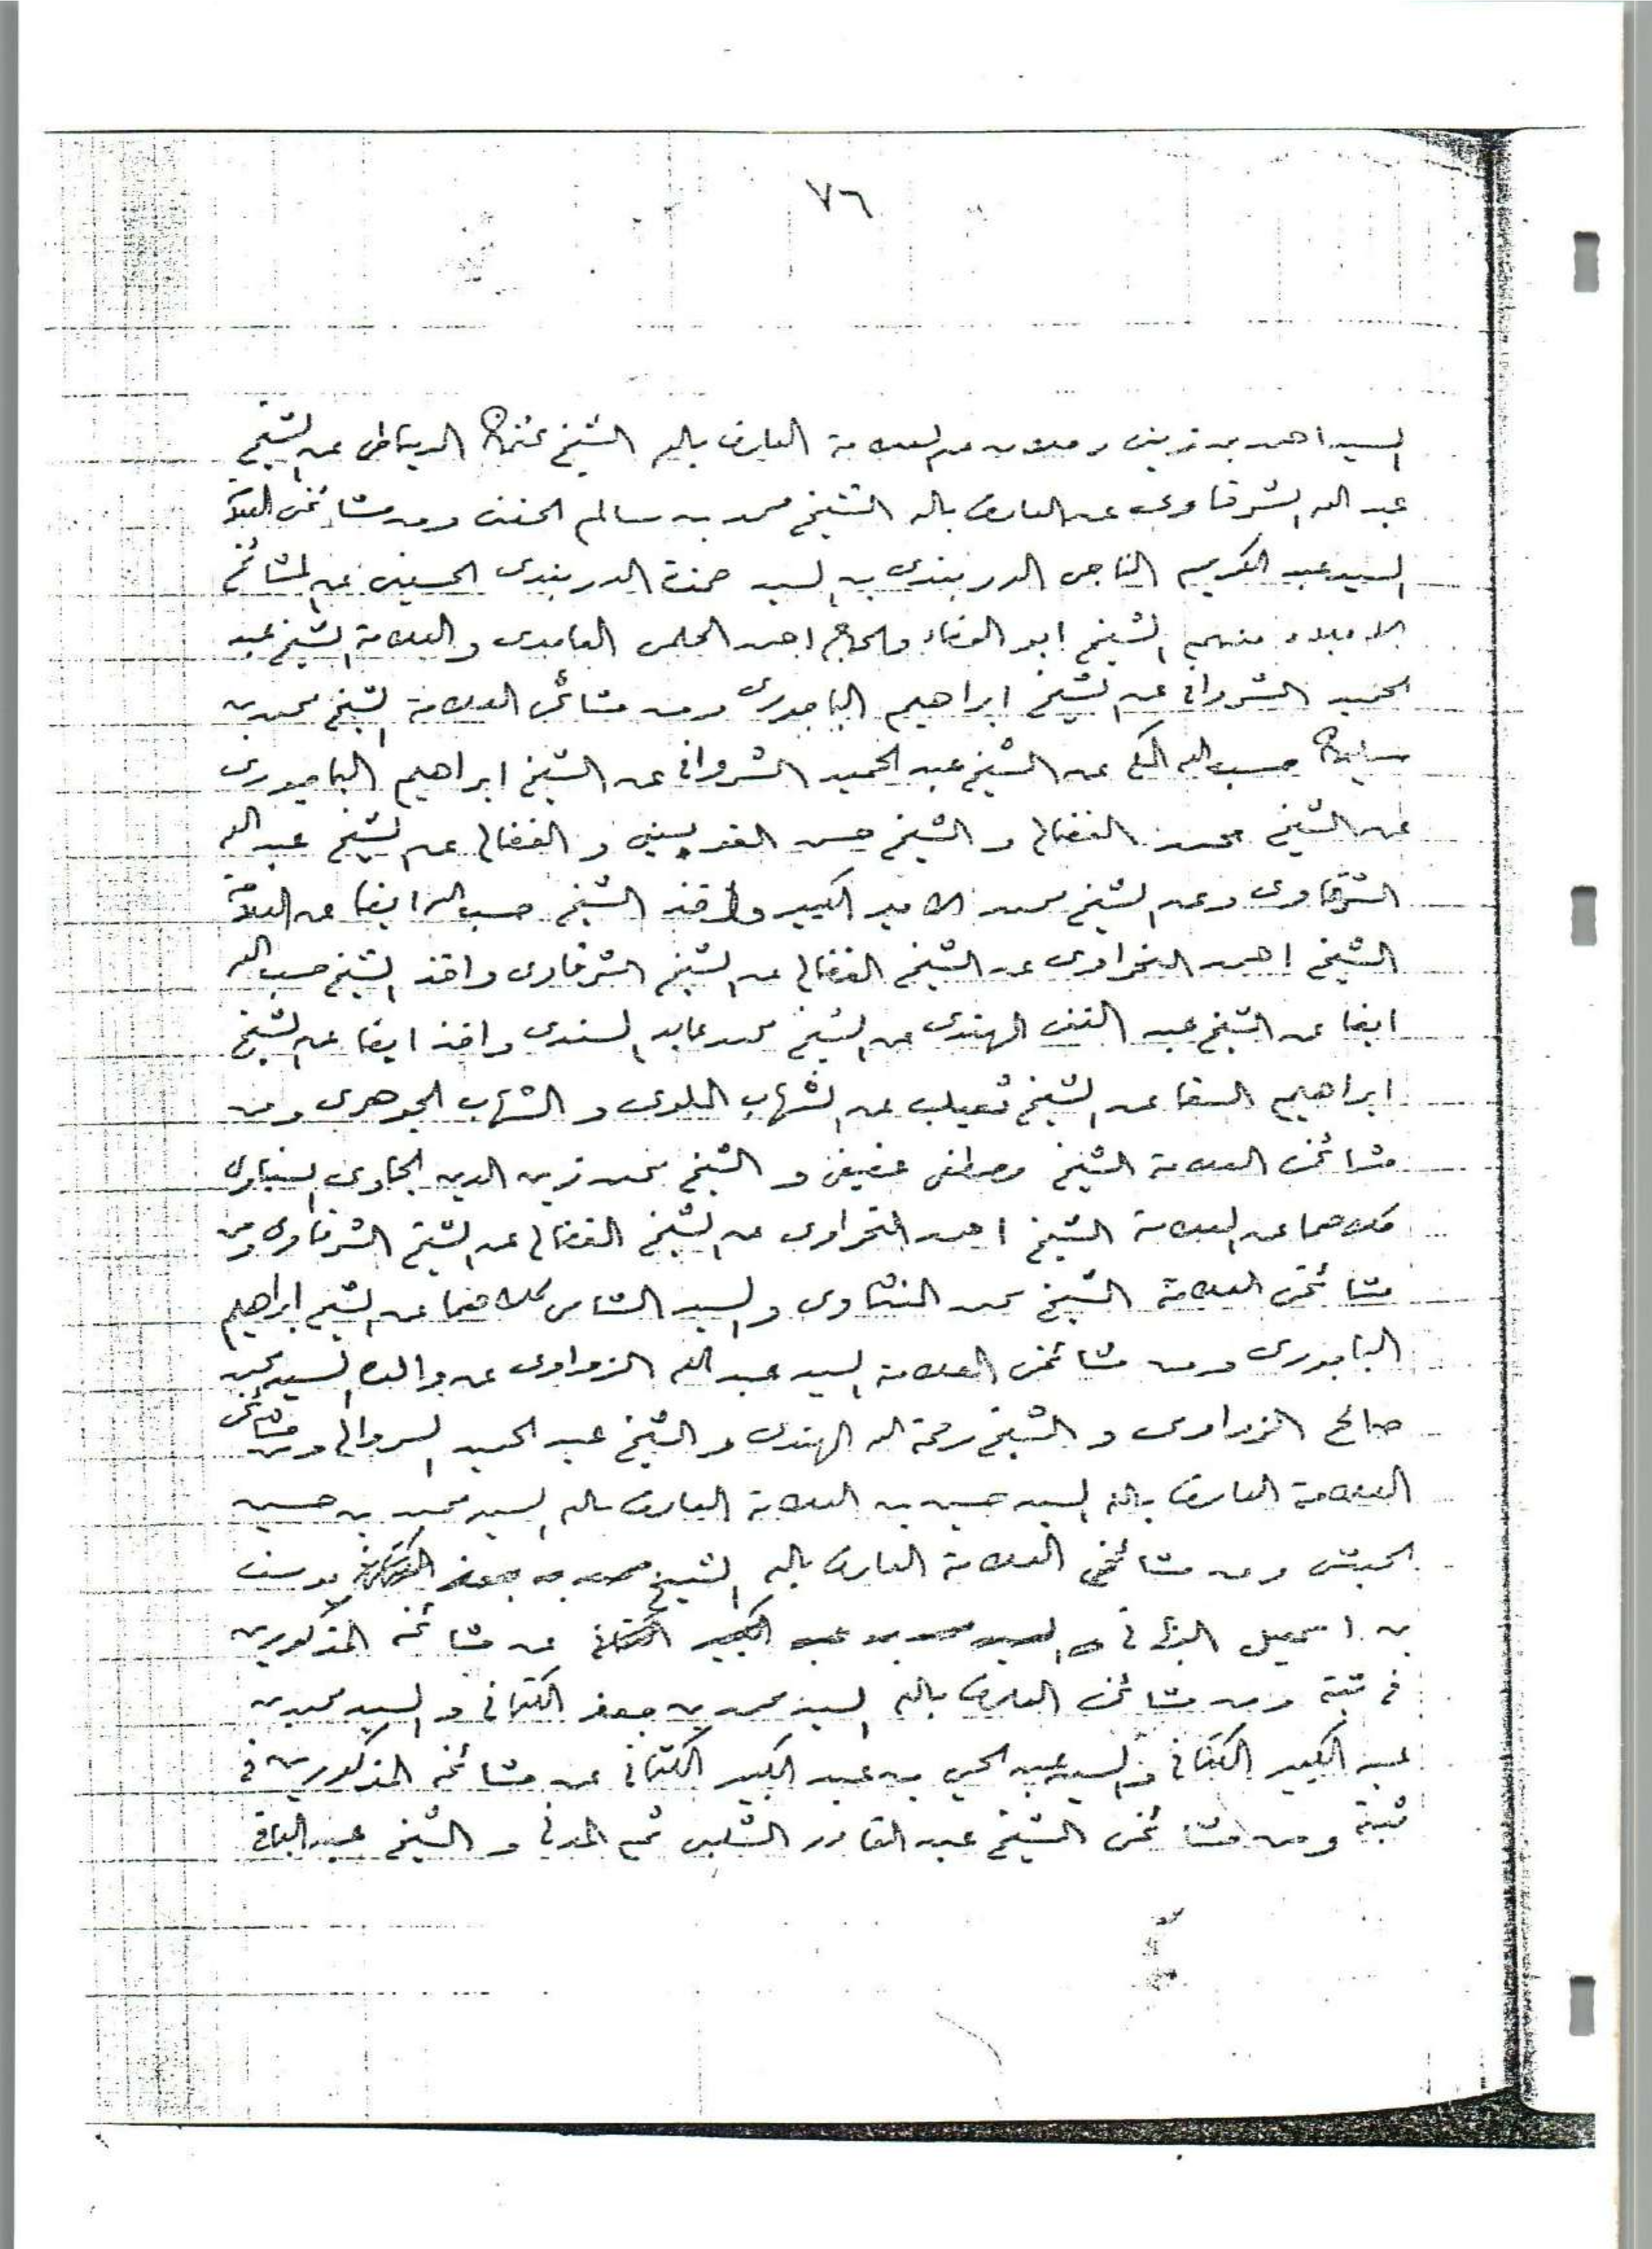 ٧٦
السيد احمد بن زيني دحلان عن العلامة العارف بالله الشيخ عثمان الدمياطي عن الشيخ
عبد الله الشرقاوي عن العارف بالله الشيخ محمد بن سالم الحفني ومن مشائخي العلامة
السيد عبد الكريم الناجي الدربندي بن السيد حمزة الدربندي الحسيني عن المشائخ
الاجلاء منهم الشيخ ابو الوفاء والحاج احمد الحلمي الغامدي والعلامة الشيخ عبد
الحميد الشرواني عن الشيخ ابراهيم الباجوري ومن مشائخي العلامة الشيخ محمد بن
سليمان حسب الله المكي عن الشيخ عبد الحميد الشرواني عن الشيخ ابراهيم الباجوري
عن الشيخ محمد الفضالي و الشيخ حسن القويسني و الفضالي عن الشيخ عبد الله
الشرقاوي وعن الشيخ محمد الامير الكبير واخذ الشيخ حسب الله ايضا عن العلامة
الشيخ احمد النحراوي عن الشيخ الفضالي عن الشيخ الشرقاوي واخذ الشيخ حسب الله
ايضا عن الشيخ عبد الغني الهندي عن الشيخ محمد عابد السندي واخذ ايضا عن الشيخ
ابراهيم السقا عن الشيخ ثعيلب عن الشهاب الملوي و الشهاب الجوهري ومن
مشائخي العلامة الشيخ مصطفى عفيفي و الشيخ محمد زين الدين الجاوي السنباوي
كلاهما عن العلامة الشيخ احمد النحراوي عن الشيخ الفضالي عن الشيخ الشرقاوي ومن
مشائخي العلامة الشيخ محمد المنشاوي والسيد الشامي كلاهما عن الشيخ ابراهيم
الباجوري ومن مشائخي العلامة السيد عبد الله الزواوي عن والده السيد محمد
صالح الزواوي و الشيخ رحمة الله الهندي و الشيخ عبد الحميد الشرواني ومن مشائخي
العلامة العارف بالله السيد حسين بن العلامة العارف بالله السيد محمد بن حسين
الحبشي ومن مشائخي العلامة العارف بالله الشيخ يوسف
بن اسمعيل النبهاني عن مشائخه المذكورين
في ثبته ومن مشائخي العارف بالله السيد محمد بن جعفر الكتاني و السيد محمد بن
عبد الكبير الكتاني و السيد عبد الحي بن عبد الكبير الكتاني عن مشائخه المذكورين في
ثبته ومن مشائخي الشيخ عبد القادر الشلبي ثم المدني و الشيخ عبد الباقي